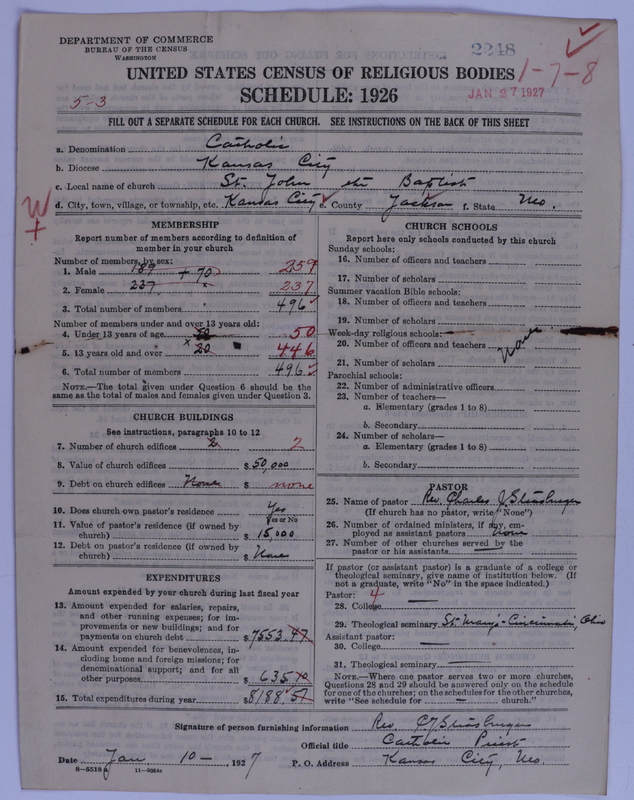 DEPARTMENT OF COMMERCE
BUREAU OF THE CENSUS
WASHINGTON
2248
1-7-8
UNITED STATES CENSUS OF RELIGIOUS BODIES
SCHEDULE: 1926
5-3
JAN 27 1927
FILL OUT A SEPARATE SCHEDULE FOR EACH CHURCH. SEE INSTRUCTIONS ON THE BACK OF THIS SHEET
a. Denomination Catholic
b. Diocese Kansas City
c. Local name of church St. John the Baptist
d. City, town, village, or township, etc. Kansas City e. County Jackson f. State Mo.
MEMBERSHIP
Report number of members according to definition of member in your church
Number of members, by sex:
1. Male 189 + 70 259
2. Female 237 237
3. Total number of members 496
Number of members under and over 13 years old:
4. Under 13 years of age 50 50
5. 13 years old and over 20 446
6. Total number of members 496
NOTE.—The total given under Question 6 should be the same as the total of males and females given under Question 3.
CHURCH BUILDINGS
See instructions, paragraphs 10 to 12
7. Number of church edifices 2 2
8. Value of church edifices $ 50,000
9. Debt on church edifices None $ none
10. Does church own pastor's residence? Yes
Yes or No
11. Value of pastor's residence (if owned by church) $ 15,000
12. Debt on pastor's residence (if owned by church) $ None
EXPENDITURES
Amount expended by your church during last fiscal year
13. Amount expended for salaries, repairs, and other running expenses; for improvements or new buildings; and for payments on church debt $ 7553.47
14. Amount expended for benevolences, including home and foreign missions; for denominational support; and for all other purposes $ 635.10
15. Total expenditures during year $ 8188.57
CHURCH SCHOOLS
Report here only schools conducted by this church
Sunday schools:
16. Number of officers and teachers
17. Number of scholars
Summer vacation Bible schools:
18. Number of officers and teachers
19. Number of scholars
Week-day religious schools:
20. Number of officers and teachers None
21. Number of scholars
Parochial schools:
22. Number of administrative officers
23. Number of teachers—
a. Elementary (grades 1 to 8)
b. Secondary
24. Number of scholars—
a. Elementary (grades 1 to 8)
b. Secondary
PASTOR
25. Name of pastor Rev. Charles J. Strasburger
(If church has no pastor, write "None")
26. Number of ordained ministers, if any, employed as assistant pastors none
27. Number of other churches served by the pastor or his assistants
If pastor (or assistant pastor) is a graduate of a college or theological seminary, give name of institution below. (If not a graduate, write "No" in the space indicated.)
Pastor: 4
28. College
29. Theological seminary St. Mary's-Cincinnati, Ohio
Assistant pastor:
30. College
31. Theological seminary
NOTE.—Where one pastor serves two or more churches, Questions 28 and 29 should be answered only on the schedule for one of the churches; on the schedules for the other churches, write "See schedule for — church."
Signature of person furnishing information Rev. C J Strasburger
Official title Catholic Priest
Date Jan 10 —, 1927 P. O. Address Kansas City, Mo.
8-5518